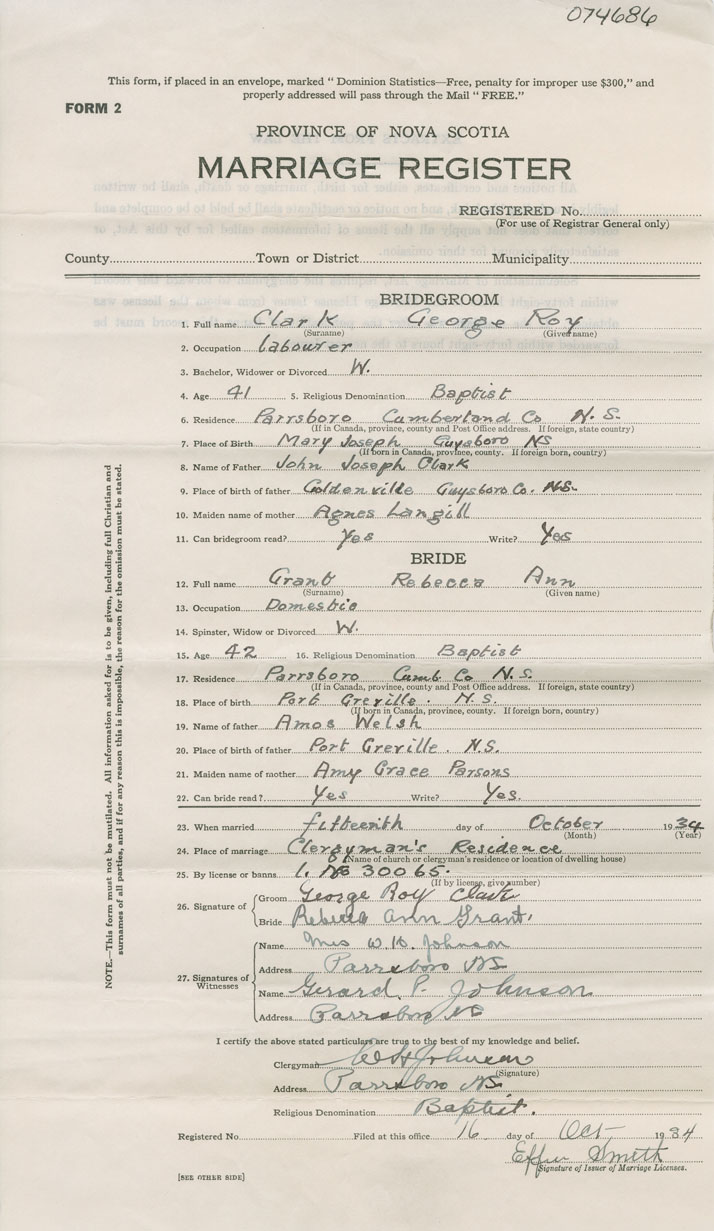 074686
This form, if placed in an envelope, marked “ Dominion Statistics—Free, penalty for improper use $300,” and
properly addressed will pass through the Mail “ FREE.”
FORM 2
PROVINCE OF NOVA SCOTIA
MARRIAGE REGISTER
REGISTERED No.
(For use of Registrar General only)
County Town or District Municipality
BRIDEGROOM
1. Full name Clark George Roy
(Surname) (Given name)
2. Occupation Labourer
3. Bachelor, Widower or Divorced W.
4. Age 41 5. Religious Denomination Baptist
6. Residence Parrsboro Cumberland Co N. S.
(If in Canada, province, county and Post Office address. If foreign, state country)
7. Place of Birth Mary Joseph Guysboro NS
(If born in Canada, province, county. If foreign born, country)
8. Name of Father John Joseph Clark
9. Place of birth of father Goldenville Guysboro Co. N.S.
10. Maiden name of mother Agnes Langill
11. Can bridegroom read? Yes Write? Yes
BRIDE
12. Full name Grant Rebecca Ann
(Surname) (Given name)
13. Occupation Domestic
14. Spinster, Widow or Divorced W.
15. Age 42 16. Religious Denomination Baptist
17. Residence Parrsboro Cumb Co N.S.
(If in Canada, province, county and Post Office address. If foreign, state country)
18. Place of birth Port Greville. N.S.
(If born in Canada, province, county. If foreign born, country)
19. Name of father Amos Welsh
20. Place of birth of father Port Greville. N.S.
21. Maiden name of mother Amy Grace Parsons
22. Can bride read? Yes Write? Yes.
23. When married fifteenth day of October 1934
(Month) (Year)
24. Place of marriage Clergyman's Residence
(Name of church or clergyman's residence or location of dwelling house)
25. By license or banns L. No 30065.
(If by license, give number)
26. Signature of Groom George Roy Clark
Bride Rebecca Ann Grant
27. Signatures of Witnesses
Name Mrs W. H. Johnson
Address Parrsboro NS
Name Gerard. P. Johnson
Address Parrsboro NS
I certify the above stated particulars are true to the best of my knowledge and belief.
Clergyman W H Johnson
(Signature)
Address Parrsboro NS.
Religious Denomination Baptist.
Registered No. Filed at this office 16 day of Oct 1934
Effie Smith
Signature of Issuer of Marriage Licenses.
[SEE OTHER SIDE]
NOTE.—This form must not be mutilated. All information asked for is to be given, including full Christian and
surnames of all parties, and if for any reason this is impossible, the reason for the omission must be stated.